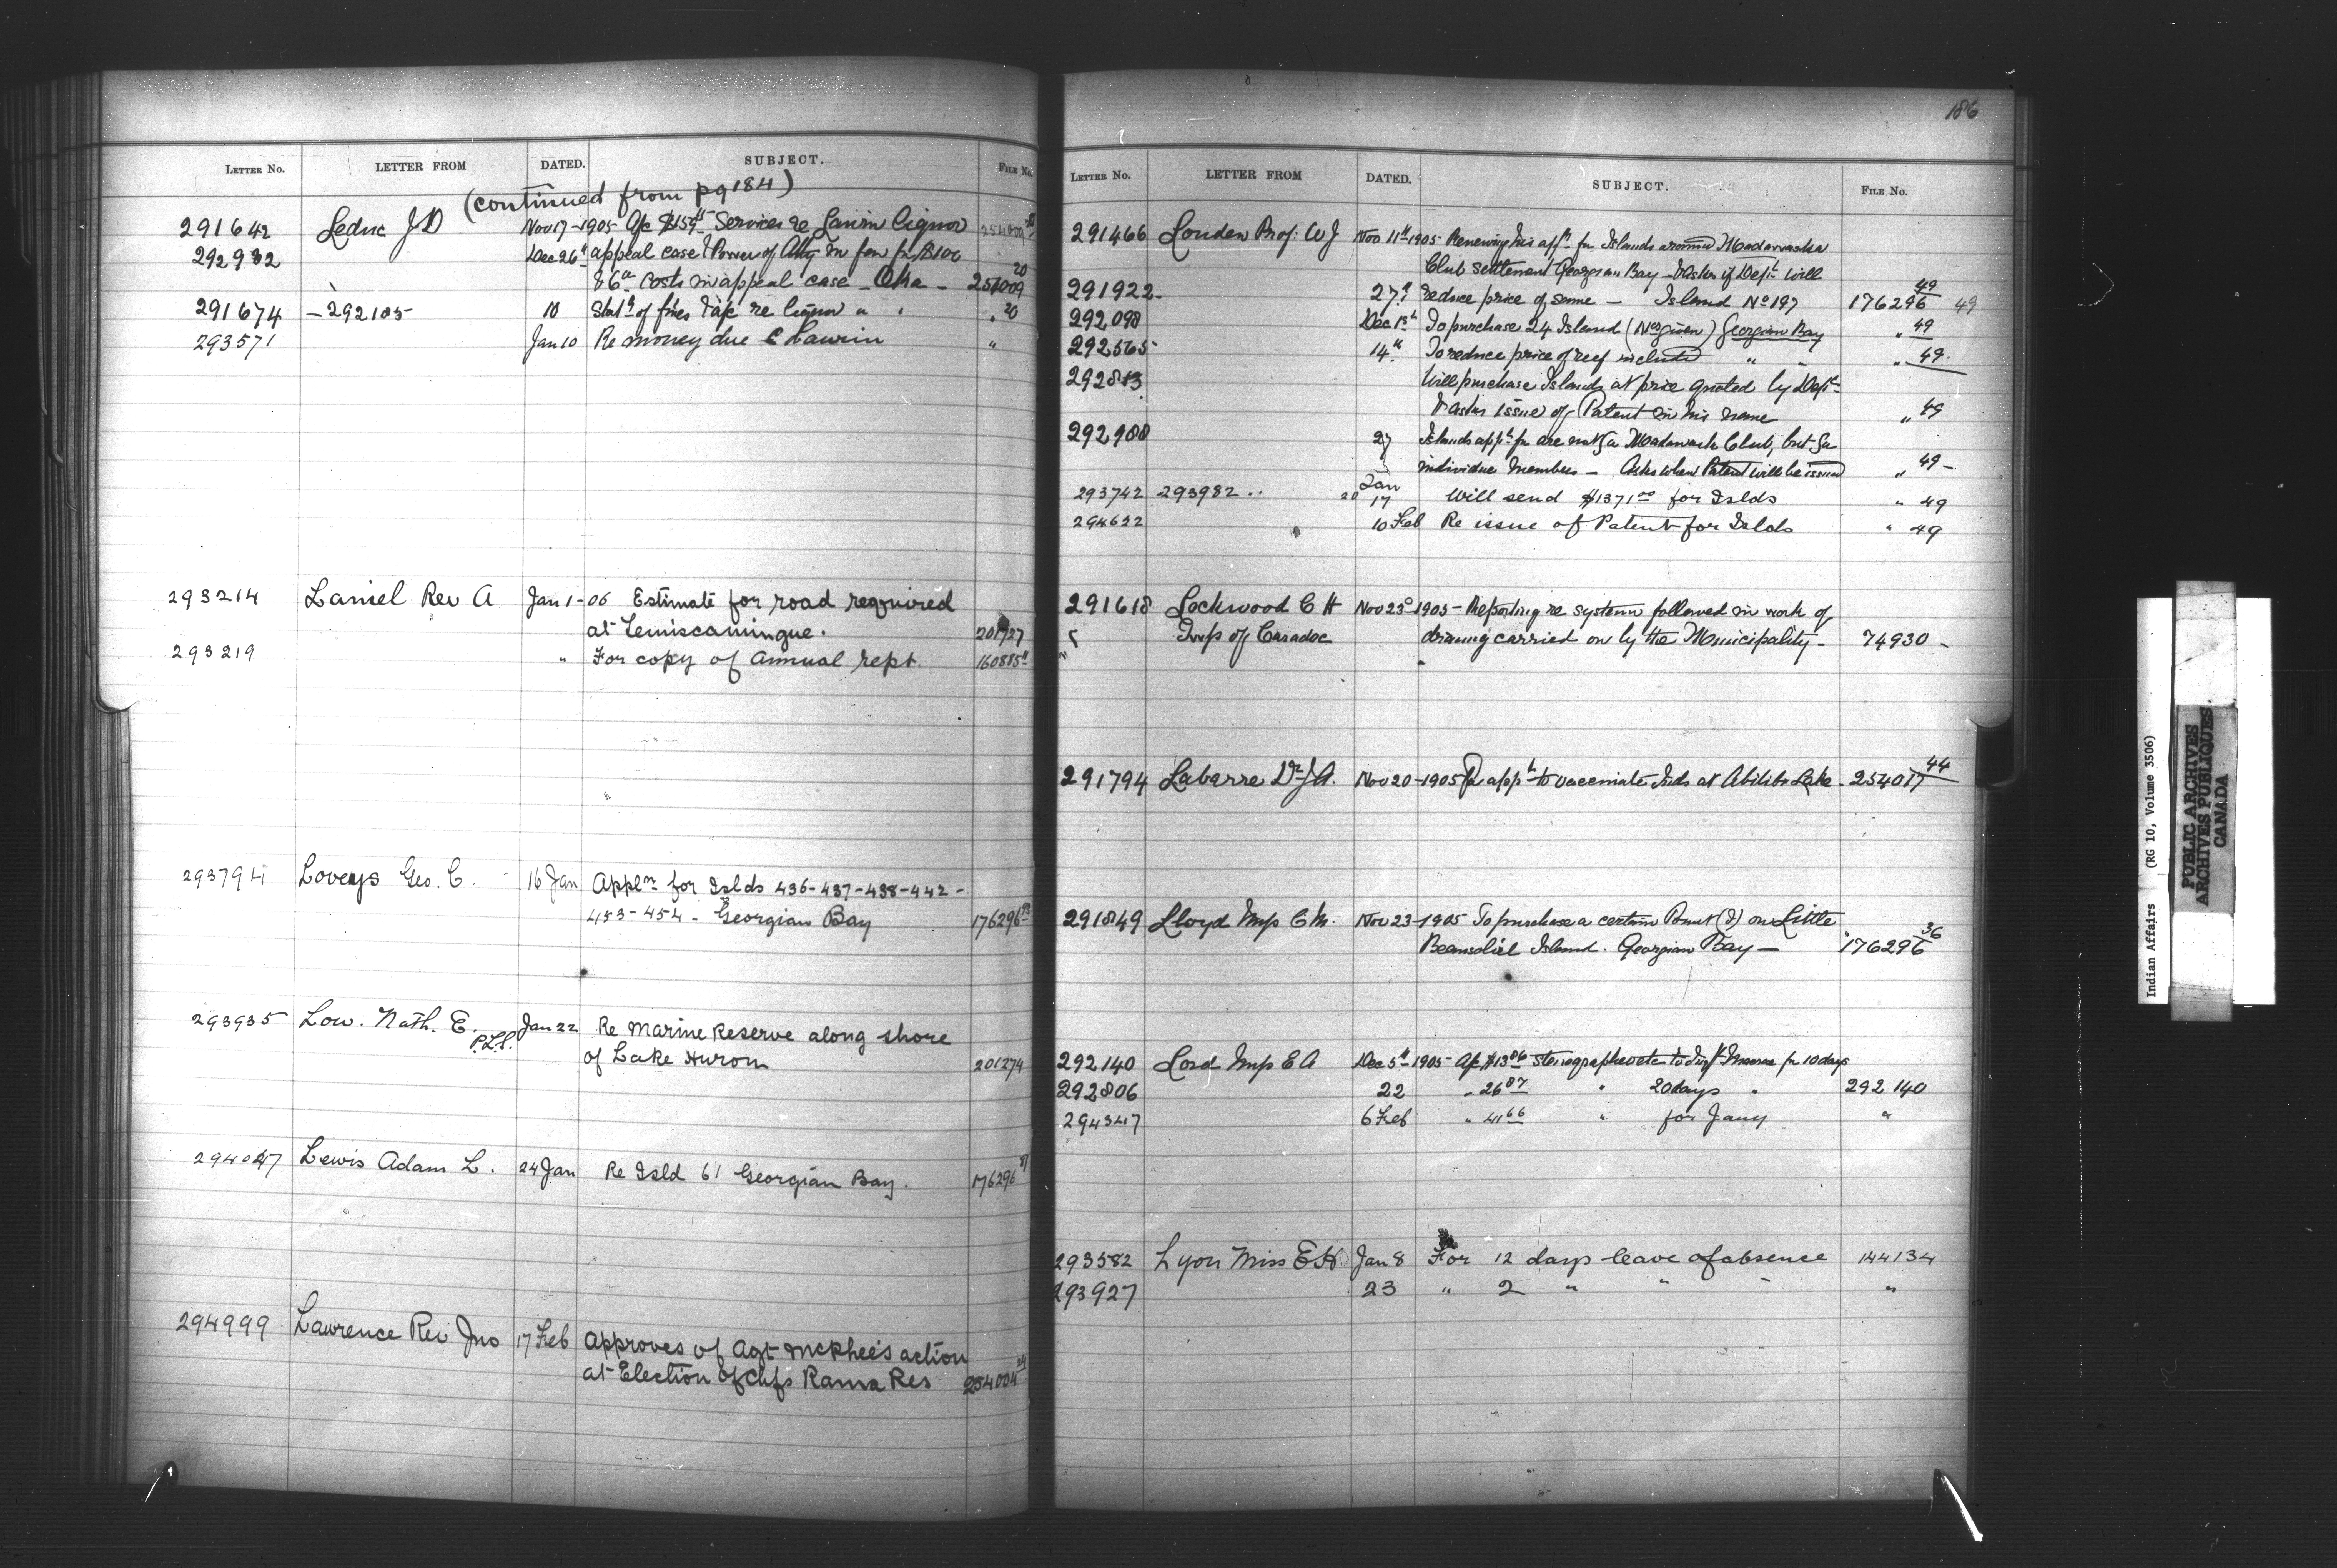 LETTER No. LETTER FROM DATED. SUBJECT. FILE No.
(continued from pg 184)
291642 Leduc J D Nov 17-1905 a/c Services re Laurin liquor
292932 Dec 26 appeal case
costs in appeal case - Oka - 20
291674 - 292185 10 of fines re liquor " 20
293571 Jan 10 Re money due Laurin "
293214 Laniel Rev A Jan 1-06 Estimate for road required
at Temiscamingue. 201727
293219 " For copy of annual rept. 160885
293794 Loveys Geo. C. 16 Jan Appln for Islds 436-437-438-442-
453-454- Georgian Bay 176296
293935 Low. Nath. E. Jan 22 Re Marine Reserve along shore
P.L.S.
of Lake Huron 201274
294047 Lewis Adam L. 24 Jan Re Isld 61 Georgian Bay. 176296
294999 Lawrence Rev Jno 17 Feb Approves of Agt McPhee's action
at Election of Chfs Rama Res 254004
186
LETTER No. LETTER FROM DATED. SUBJECT. FILE No.
291466 Louden Prof: W J Nov 11th 1905- Renewing his appn for Islands around Madawaska
Club settlement Georgian Bay - & asks if Dept will
291922- 27th reduce price of same - Island No 197 176296 49 49
292098 Dec 1st To purchase 24 Island (Nos given) Georgian Bay " 49
292565 14th To reduce price of reef included " " " 49.
292813 Will purchase Islands at price quoted by Dept-
& asks issue of Patent in his name " 49
292988 27 Islands appd for are not for Madawaska Club, but for
individual members - Asks when Patent will be issued " 49 -
Jan
293742 293982 .. 20 17 Will send $1371.00 for Islds " 49
294622 10 Feb Re issue of Patent for Islds " 49
291618 Lockwood C H Nov 23d 1905- Reporting re system followed in work of
Twp of Caradoc draining carried on by the Municipality - 74930 -
291794 Labarre Dr J A. Nov 20-1905 appt to vaccinate Inds at Abitibi Lake. 254017 44
291849 Lloyd Mrs C M. Nov 23-1905 To purchase a certain Point (?) on Little
Beausoliel Island. Georgian Bay - 176296 36
292140 Lord Mrs E A Dec 5th 1905- a/c $13.86 stenographer for 10 days
292806 22 " 26 87 " 20 days " 292140
294347 6 Feb " 41 66 " for Jany "
293582 Lyon Miss E H Jan 8 For 12 days leave of absence 144134
293927 23 " 2 " " " "
Indian Affairs (RG 10, Volume 3506)
PUBLIC ARCHIVES
ARCHIVES PUBLIQUES
CANADA